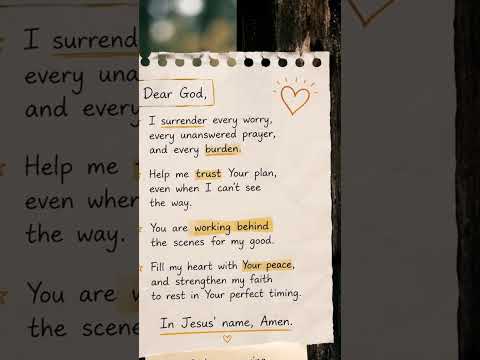 Dear God,
I surrender every worry,
every unanswered prayer,
and every burden.
Help me trust Your plan,
even when I can't see
the way.
You are working behind
the scenes for my good.
Fill my heart with Your peace,
and strengthen my faith
to rest in Your perfect timing.
In Jesus' name, Amen.
I surrender
every unan
and every
Help me
even when
the way.
You are
the scenes